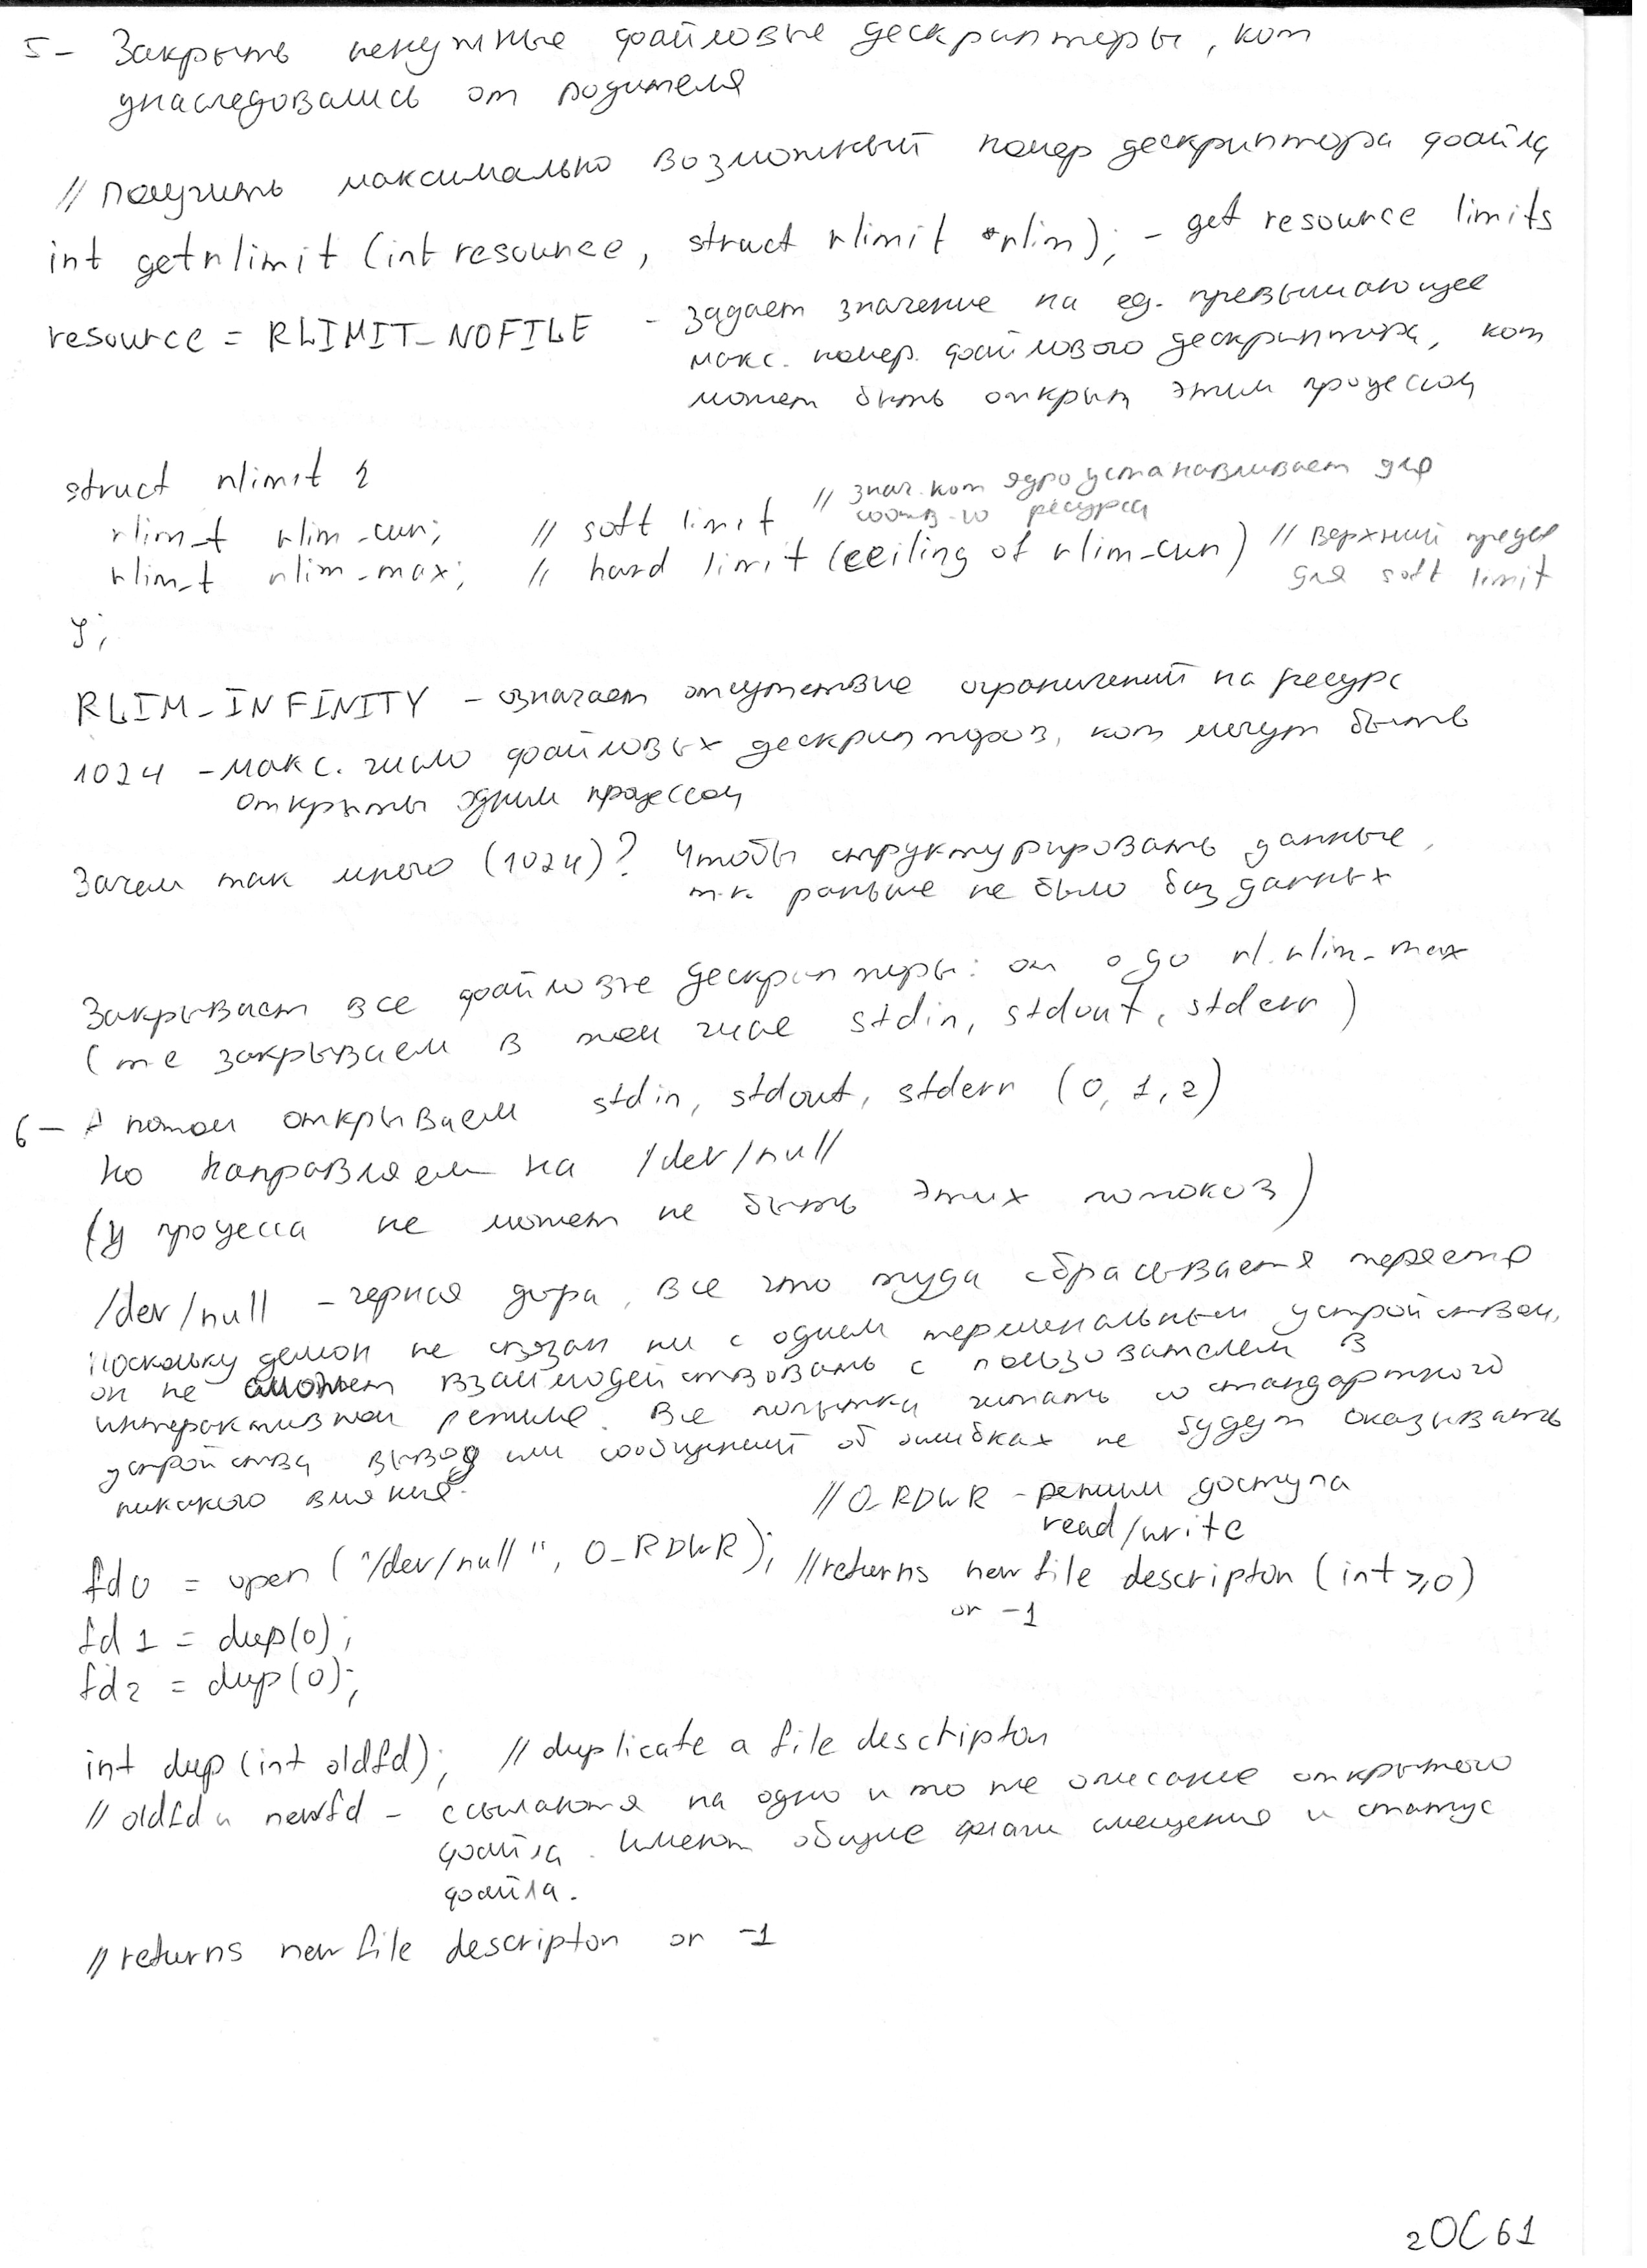 5 - Закрыть ненужные файловые дескрипторы, кот
унаследовались от родителя
// Получить максимально возможный номер дескриптора файла
int getrlimit (int resource, struct rlimit *rlim); - get resource limits
resource = RLIMIT_NOFILE - задает значение на ед. превышающее
макс. номер. файлового дескриптора, кот
может быть открыт этим процессом
struct rlimit {
rlim_t rlim_cur; // soft limit // знач. кот ядро устанавливает для
соотв-го ресурса
rlim_t rlim_max; // hard limit (ceiling of rlim_cur) // верхний предел
для soft limit
};
RLIM_INFINITY - означает отсутствие ограничений на ресурс
1024 - макс. число файловых дескрипторов, кот могут быть
открыты одним процессом
Зачем так много (1024)? Чтобы структурировать данные,
т.к. раньше не было баз данных
Закрывает все файловые дескрипторы: от 0 до rl.rlim_max
(т е закрываем в том числе stdin, stdout, stderr)
6 - А потом открываем stdin, stdout, stderr (0, 1, 2)
но направляем на /dev/null
(У процесса не может не быть этих потоков)
/dev/null - черная дыра, все что туда сбрасывается теряется
Поскольку демон не связан ни с одним терминальным устройством,
он не может взаимодействовать с пользователем в
интерактивном режиме. Все попытки читать со стандартного
устройства вывода или сообщений об ошибках не будут оказывать
никакого влияния.
// O_RDWR - режим доступа
read/write
fd0 = open ("/dev/null", O_RDWR); // returns new file descriptor (int ≥ 0)
or -1
fd1 = dup(0);
fd2 = dup(0);
int dup (int oldfd); // duplicate a file desctiptor
// oldfd и newfd - ссылаются на одно и то же описание открытого
файла. Имеют общие флаги смещения и статус
файла.
// returns new file descriptor or -1
2ОС61